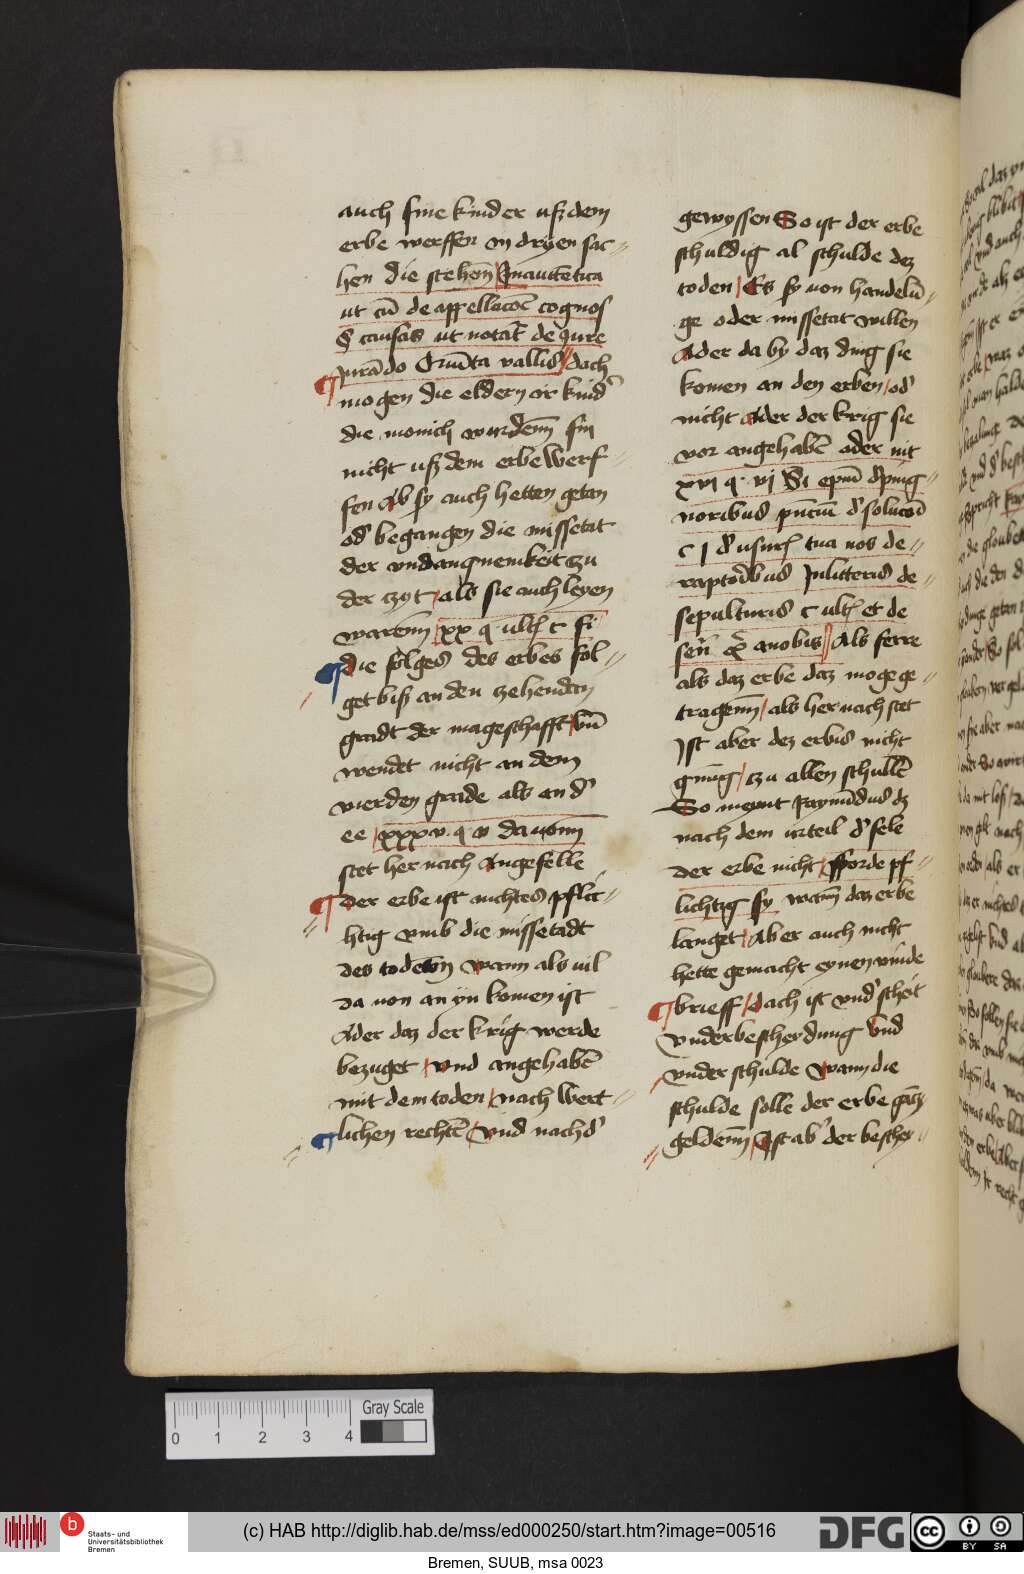 auch sine kinder usz dem
erbe werffen in dryen sac-
hen die stehen̄ Jn autētica
ut cū de appellacōe cognos
causas ut notat̉ de iure
iurādo Cruēta vallis dach
mogen die eldern ir kind̉
die monich wurdenn̄ sin
nicht usz dem erbe werf-
fen Ab sy auch hetten getan
od̉ begangen die missetat
der vndangnemkeit zu
der czyt als sie auch leyen
warenn̄ xx q ult̉ c si
die folges des erbes fol-
get bisz an den zehendēn
gradt der mageschafft vn̄
wendet nicht an dem
vierden grade als an d̉
ee xxxv q v da vonn̄
stet her nach Angefelle
der erbe ist nichtes pflic-
htig vmb die missetadt
des toden wann als vil
da von an yn komen ist
Ader daz der krig werde
bezuget vnd angehabē
mit dem toden nach wert-
lichen rechtē vnd nach d̉
gewyssen So ist der erbe
schuldig al schulde dez
toden Es sy von handelū-
ge oder missetat willen
Ader da by daz ding sie
komen an den erben od̉
nicht Ader der krig sie
vor angehabē oder nit
xvi q vj Si epm̄ d̉ ping-
noribus d̉ solucōi
c j d̉ usur̉ tua nos de-
raptoribus Jn litteris de-
sepulturis c ult̉ et de
sen̄ a nobis Als ferre
als daz erbe daz moge ge-
tragenn̄ als her nach stet
Ist aber dez erbis nicht
gnūg czu allen schullē
So meynt Raymūdus dz
nach dem urteil d̉ sele
der erbe nicht fforde pf-
lichtzig sy wann̄ daz erbē
langet Aber auch nicht
hette gemacht eynen vinde
brieff dach ist vnd̉ scheit
vnderbescheydung vnd
vnder schulde wann die
schulde solle der erbe gātz
geldenn̄ Jst ab̉ der beschey-
0 1 2 3 4
Gray Scale
b Staats- und
Universitätsbibliothek
Bremen
(c) HAB http://diglib.hab.de/mss/ed000250/start.htm?image=00516
DFG
cc BY SA
Bremen, SUUB, msa 0023